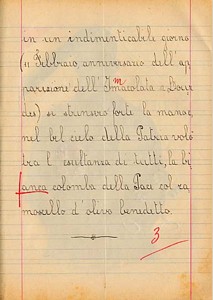 in un indimenticabile giorno
(11 Febbraio anniversario dell'ap
parizione dell'Immacolata a Lour
des) si strinsero forte la mano e,
nel bel cielo della Patria volò
tra l'esultanza di tutti, la bi
anca colomba della Pace col ra
moscello d'olivo benedetto.
3